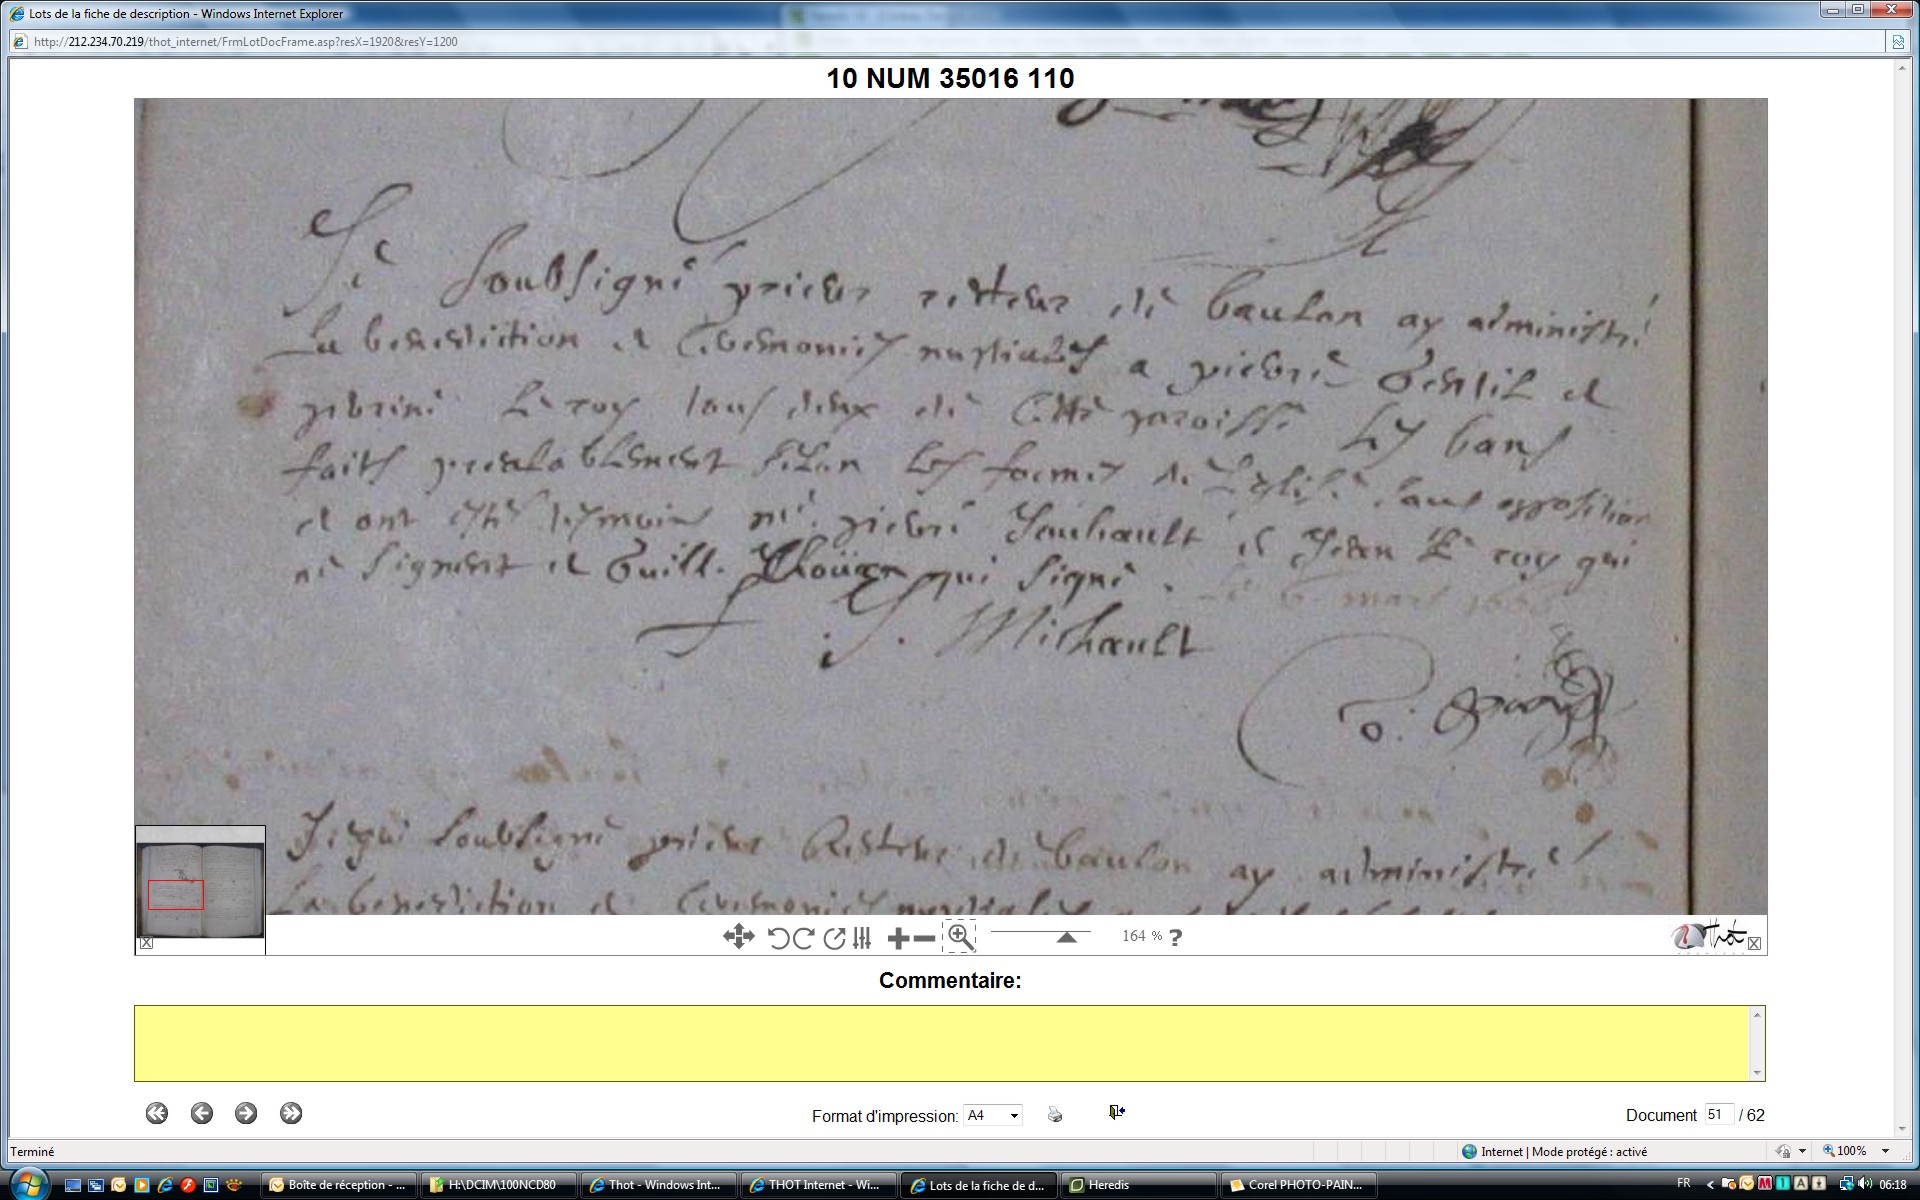 Lots de la fiche de description - Windows Internet Explorer
http://212.234.70.219/thot_internet/FrmLotDocFrame.asp?resX=1920&resY=1200
10 NUM 35016 110
Je soubsigné prieur recteur de baulon ay administré
La benediction et Ceremonies nuptiales a pierre Gentil et
perrine Le roy tous deux de Cette paroisse Les bans
faits prealablement selon Les formes de L'eglise sans opposition
et ont esté tesmoins pierre et Jean Le roy qui
ne signent et Guill. qui signe.
mars
Michault
G.
Je qui soubsigné prieur Recteur de baulon ay administré
La benediction et Ceremonies nuptiales a
164 % ?
Thot
Commentaire:
Format d'impression: A4
Document 51 / 62
Terminé
Internet | Mode protégé : activé
100%
Boîte de réception - ...
H:\DCIM\100NCD80
Thot - Windows Int...
THOT Internet - Wi...
Lots de la fiche de d...
Heredis
Corel PHOTO-PAIN...
FR
06:18